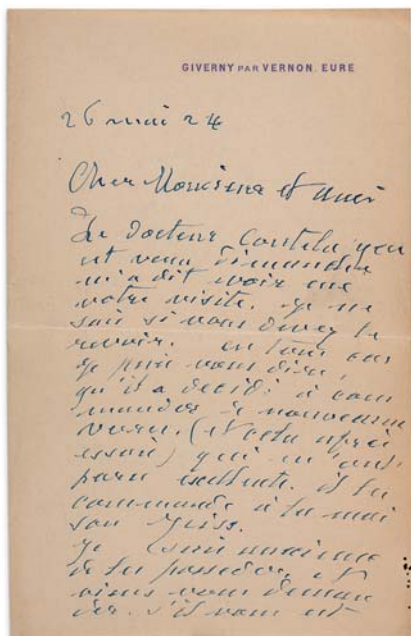 GIVERNY PAR VERNON. EURE
26 mai 24
Cher Monsieur et ami
Le docteur Coutela qui
est venu dimanche
m'a dit avoir eu
votre visite. je ne
sais si vous devez le
revoir. en tous cas
je puis vous dire,
qu'il a décidé à com
mander de nouveaux
verres. (et cela après
essais) qui m'ont
paru excellents. il les
commande à la mai
son Zeiss.
je suis anxieux
de les posséder, et
viens vous deman
der. s'il vous est